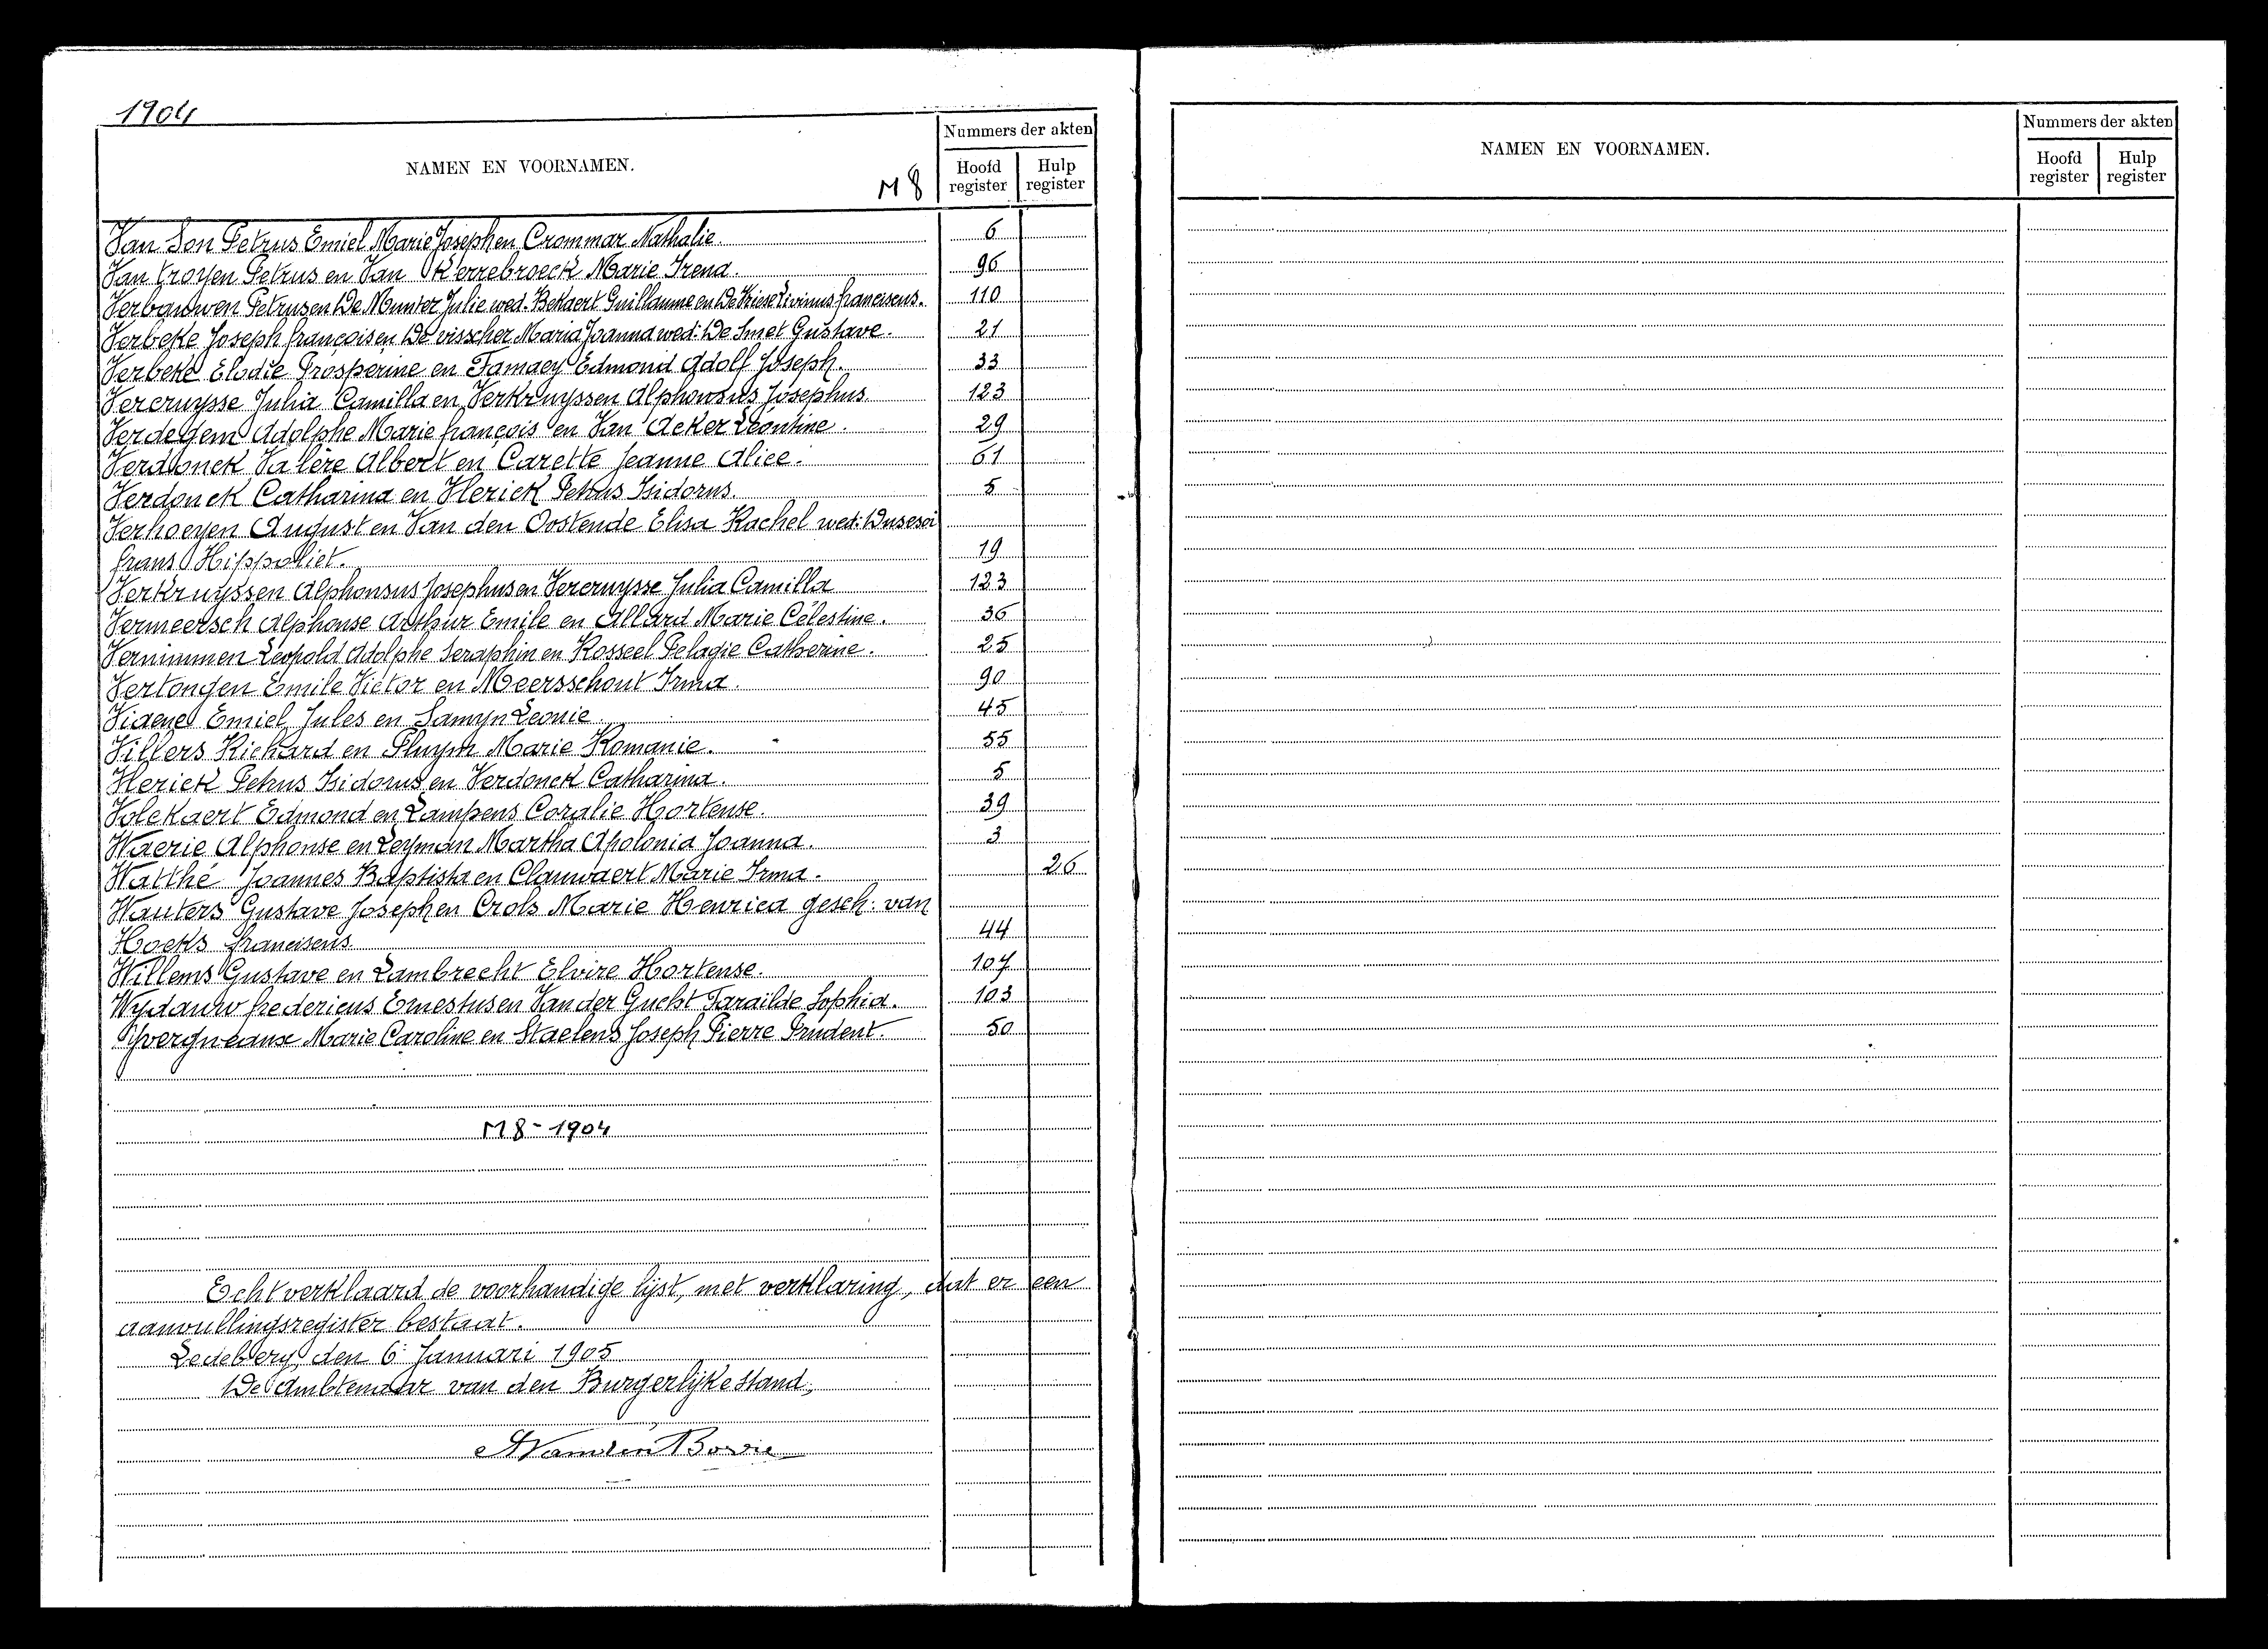 1904
NAMEN EN VOORNAMEN.
M 8
Nummers der akten
Hoofd register
Hulp register
Van Son Petrus Emiel Marie Joseph en Crommar Nathalie. 6
Van troyen Petrus en Van Kerrebroeck Marie Irena. 96
Verbauwen Petrus en De Munter Julie wed. Bekaert Guillaume en De Vriese Livinus franciscus. 110
Verbeke Joseph françois en De visscher Maria Joanna wed: De Smet Gustave. 21
Verbeke Elodie Prosperine en Famaey Edmond Adolf Joseph. 33
Vercruysse Julia Camilla en Verkruyssen Alphonsus Josephus 123
Verdegem Adolphe Marie françois en Van Acker Léontine. 29
Verdonck Valère Albert en Carette Jeanne Alice. 61
Verdonck Catharina en Vlerick Petrus Isidorus. 5
Verhoeyen August en Van den Oostende Elisa Rachel wed:
frans Hippoliet. 19
Verkruyssen Alphonsus Josephus en Vercruysse Julia Camilla 123
Vermeersch Alphonse Arthur Emile en Allard Marie Célestine. 36
Vernimmen Leopold Adolphe Seraphin en Rosseel Pelagie Catherine. 25
Vertongen Emile Victor en Meersschout Irma. 90
Videne Emiel Jules en Samyn Leonie. 45
Villers Richard en Pluym Marie Romanie. 55
Vlerick Petrus Isidorus en Verdonck Catharina. 5
Volckaert Edmond en Lampens Coralie Hortense. 39
Waerie Alphonse en Leyman Martha Apolonia Joanna. 3
Watthé Joannes Baptista en Clauwaert Marie Irma. 26
Wauters Gustave Joseph en Crols Marie Henrica gesch. van
Hoeks franciscus 44
Willems Gustave en Lambrecht Elvire Hortense. 107
Wydauw fredericus Ernestus en Van der Gucht Faraïlde Sophia. 103
Yvergneaux Marie Caroline en Staelens Joseph Pierre Prudent. 50
M 8 - 1904
Echt verklaard de voorhandige lijst, met verklaring, dat er een
aanvullingsregister bestaat.
Ledeberg, den 6: Januari 1905
De Ambtenaar van den Burgerlijke stand,
NAMEN EN VOORNAMEN.
Nummers der akten
Hoofd register
Hulp register